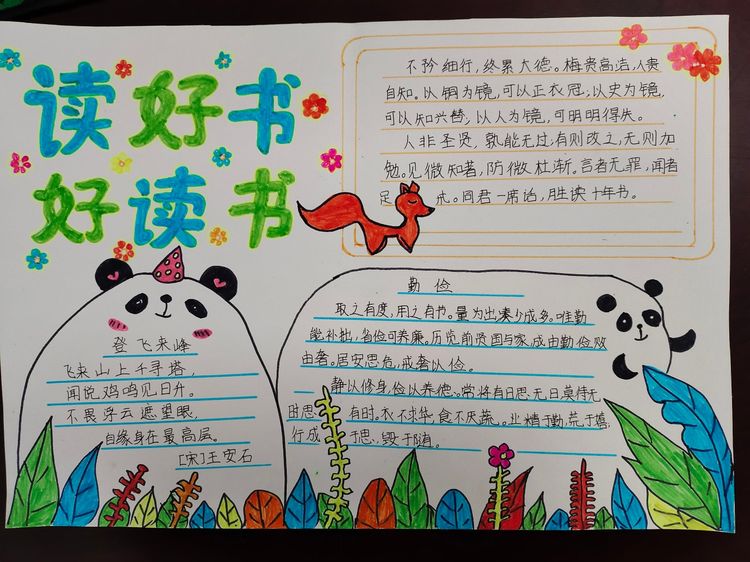 读好书
好读书
不矜细行,终累大德。梅贵高洁,人贵
自知。以铜为镜,可以正衣冠,以史为镜,
可以知兴替,以人为镜,可明明得失。
人非圣贤,孰能无过,有则改之,无则加
勉。见微知著,防微杜渐。言者无罪,闻者
足 戒。同君一席话,胜读十年书。
登飞来峰
飞来山上千寻塔,
闻说鸡鸣见日升。
不畏浮云遮望眼,
自缘身在最高层。
[宋]王安石
勤俭
取之有度,用之有节。量为出凑少成多。唯勤
能补拙,名俭可养廉。历览前贤国与家,成由勤俭败
由奢。居安思危,戒奢以俭。
静以修身,俭以养德。常将有日思无日,莫待无
时思 有时。衣不求华,食不厌蔬。业精于勤,荒于嬉,
行成 于思,毁于随。